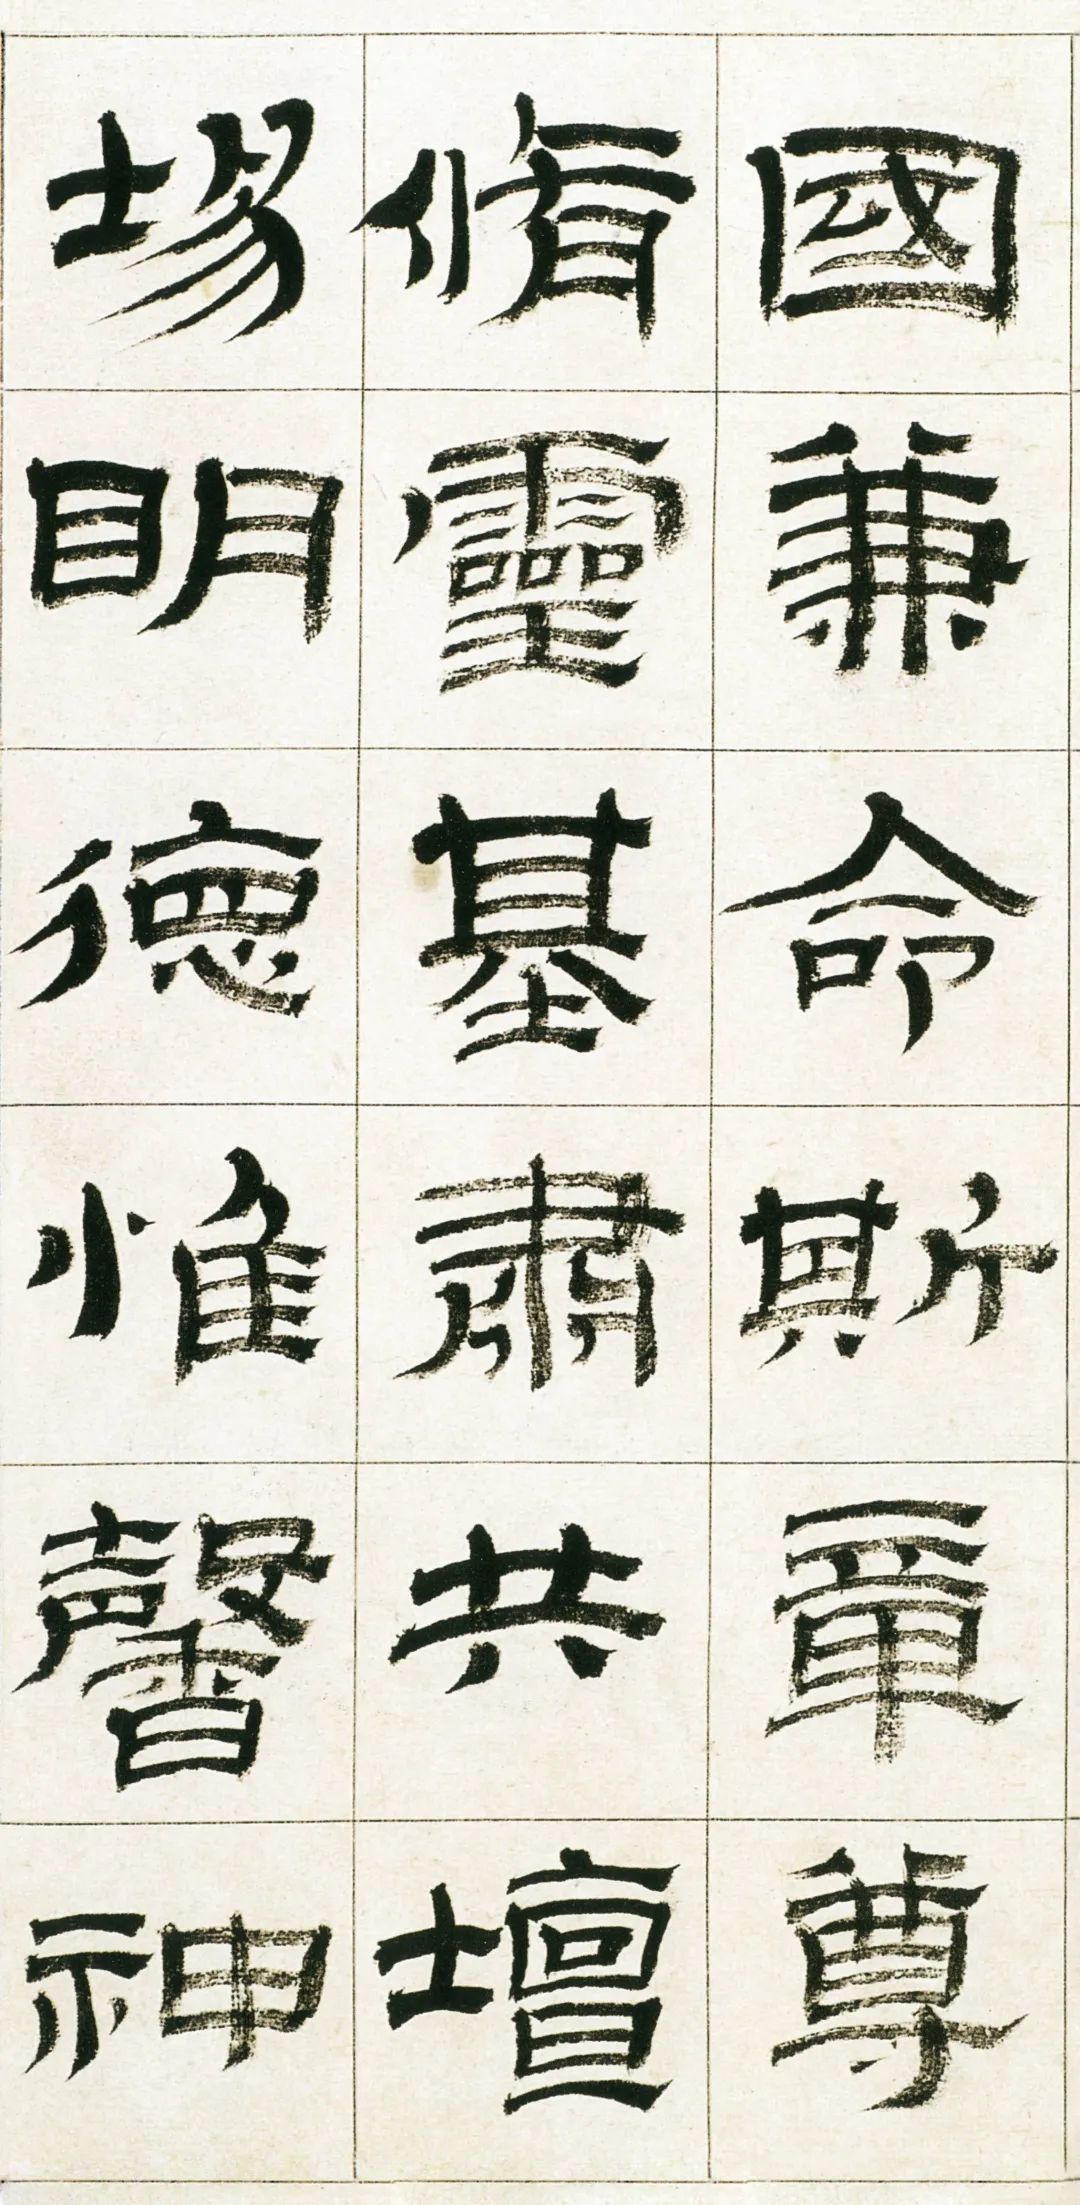 國兼命斯章尊
脩靈基肅共壇
場明德惟馨神